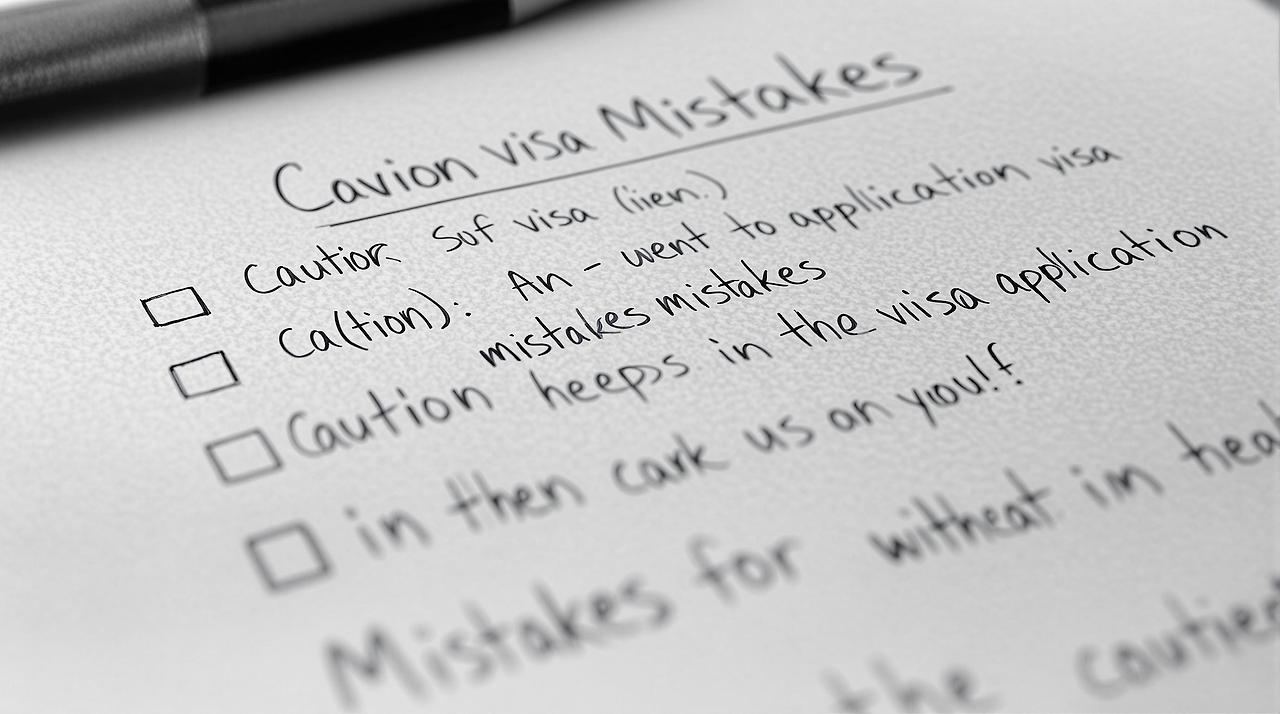 Cavion visa Mistakes
Caution Suf visa (iien.)
Ca(tion): An - went to appliication visa
mistakes mistakes
Caution heepss in the viisa application
in then cark us an you!!
Mistakes for witheat im
the